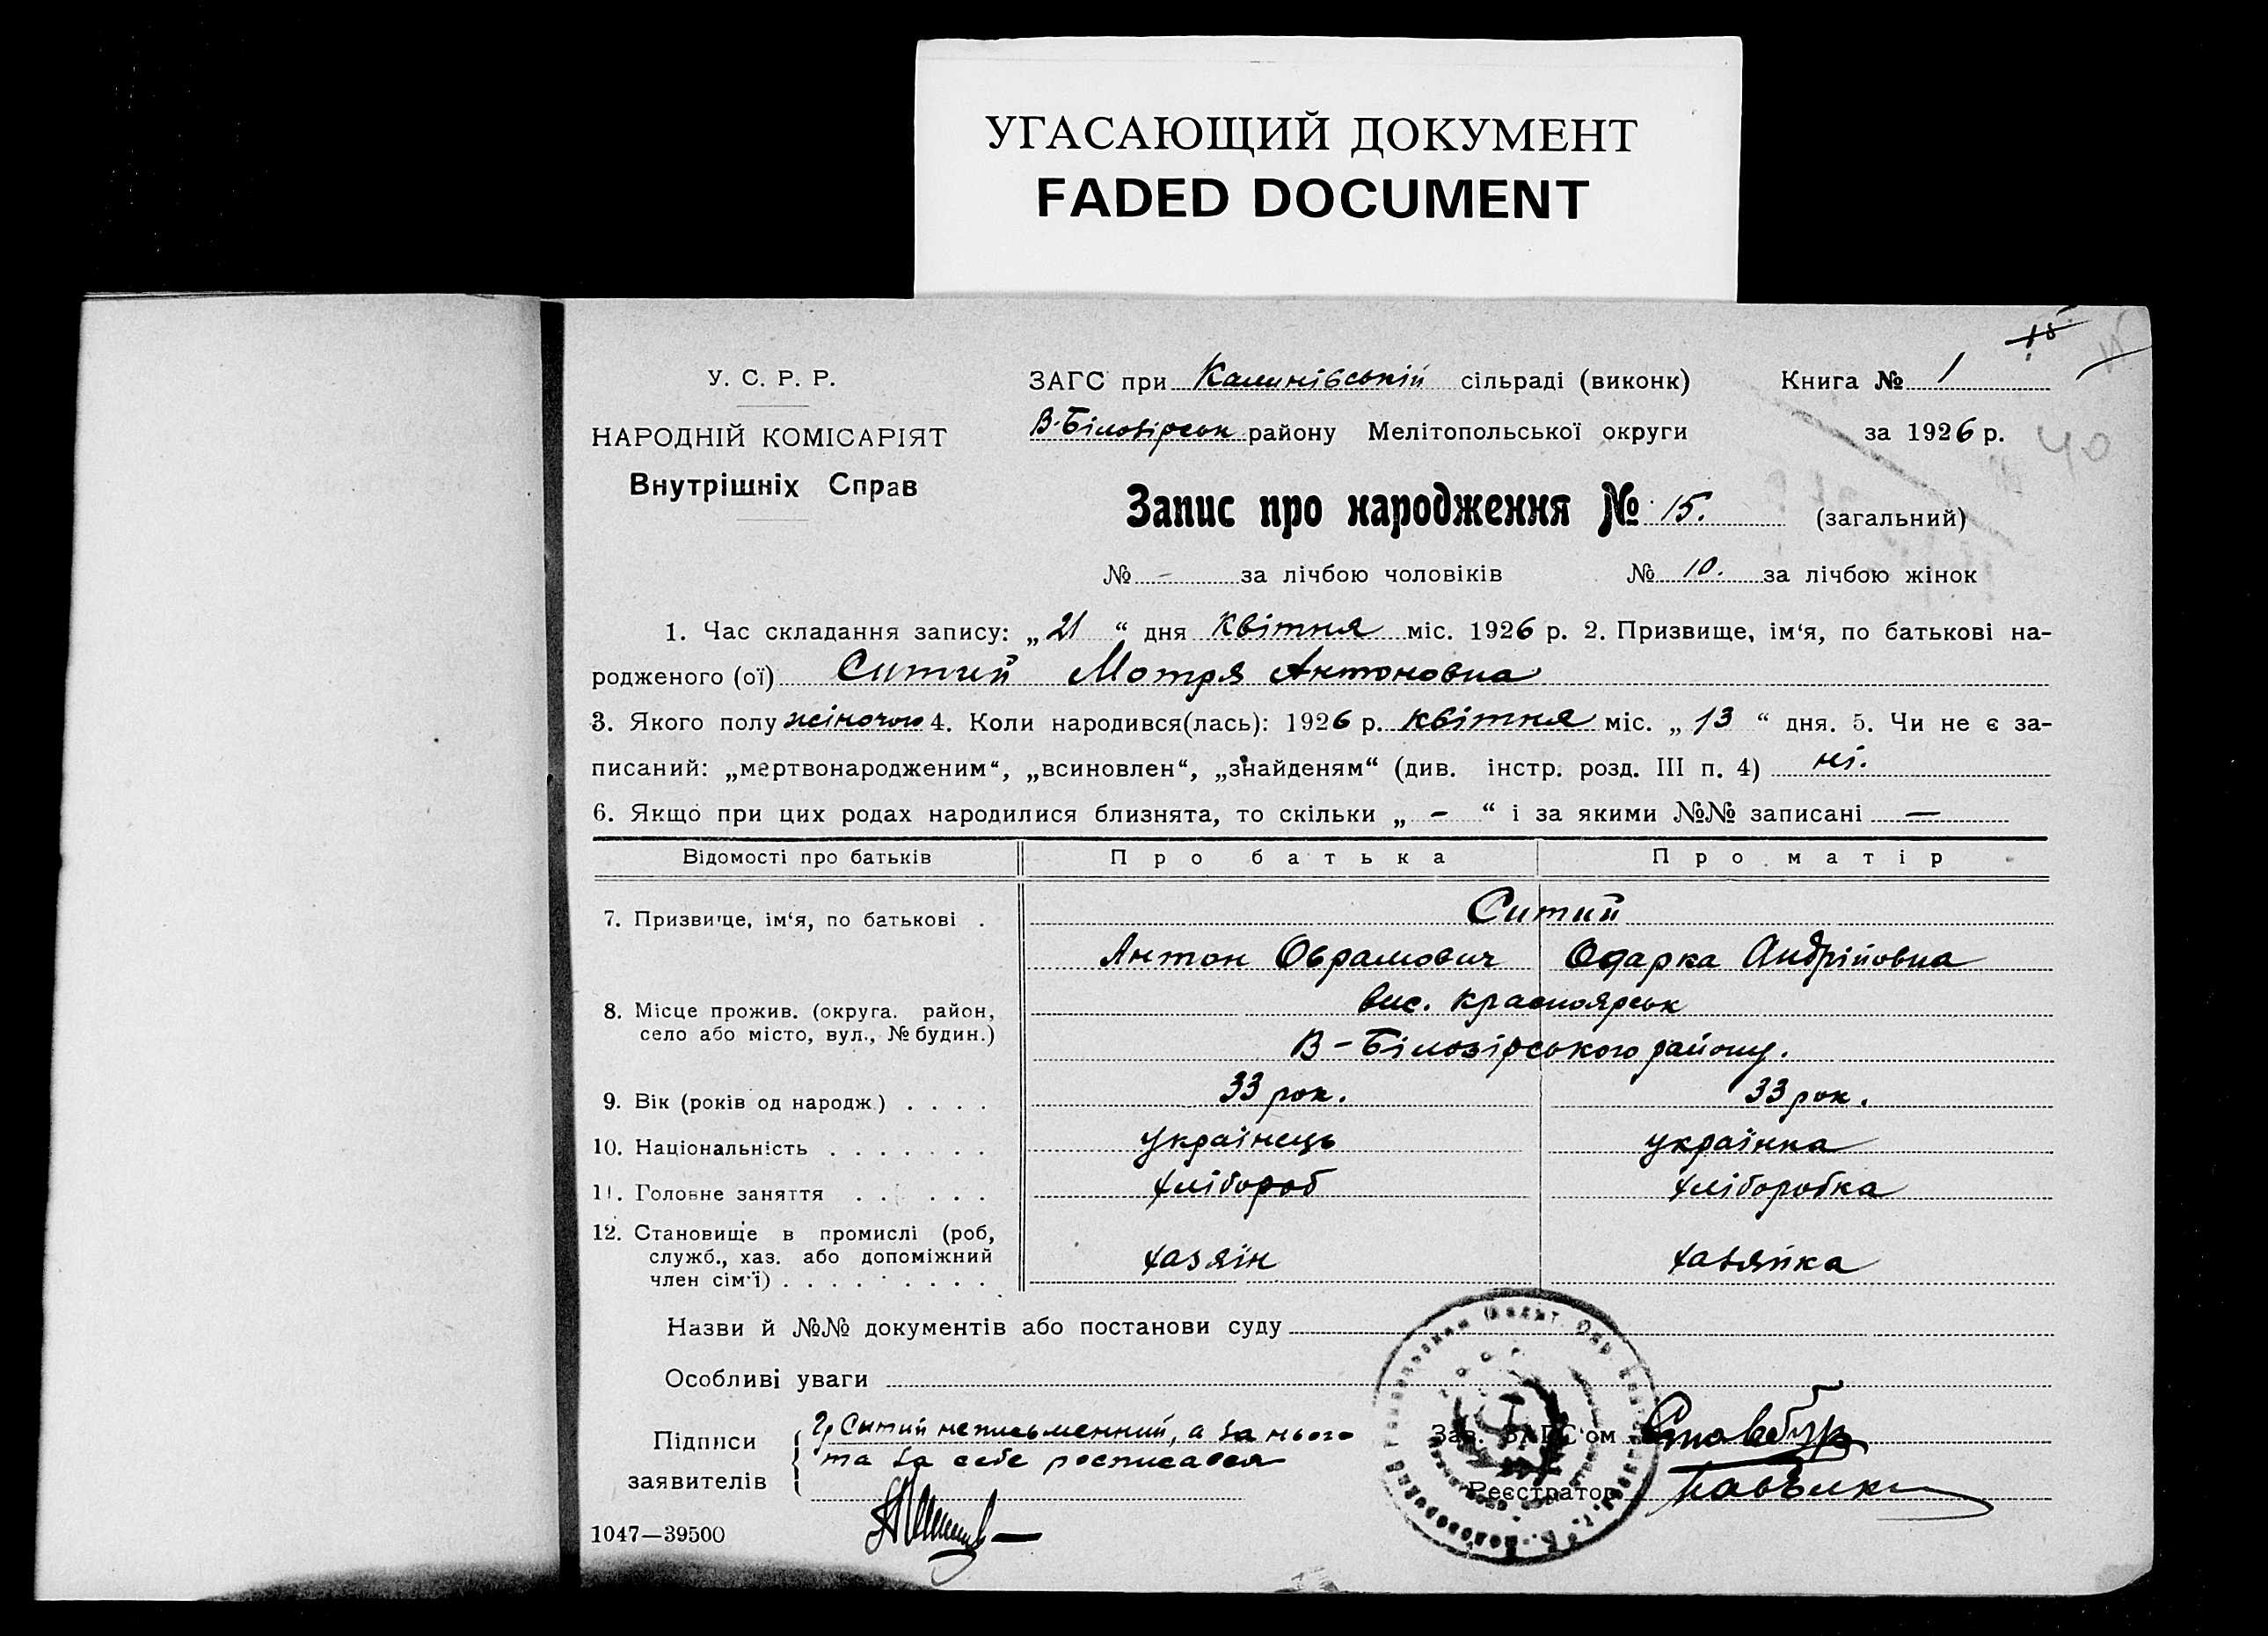 УГАСАЮЩИЙ ДОКУМЕНТ
FADED DOCUMENT
У. С. Р. Р.
НАРОДНІЙ КОМІСАРІЯТ
Внутрішніх Справ
ЗАГС при Калинівській сільраді (виконк)
Книга № 1
В-Білозірськ району Мелітопольської округи
за 1926 р.
40
Запис про народження № 15. (загальний)
№ - за лічбою чоловіків № 10. за лічбою жінок
1. Час складання запису: „21“ дня квітня міс. 1926 р. 2. Призвище, ім‘я, по батькові на-
родженого (ої) Ситий Мотря Антоновна
3. Якого полу жіночого 4. Коли народився(лась): 1926 р. квітня міс. „13“ дня. 5. Чи не є за-
писаний: „мертвонародженим“, „всиновлен“, „знайденям“ (див. інстр. розд. III п. 4) ні.
6. Якщо при цих родах народилися близнята, то скільки „ - “ і за якими №№ записані —
Відомості про батьків Про батька Про матір
7. Призвище, ім‘я, по батькові . Ситий
Антон Оврамович Одарка Андрійовна
8. Місце прожив. (округа. район,
село або місто, вул., № будин.)
вис. Красноярськ
В-Білозірського району.
9. Вік (років од народж) . . . . 33 рок. 33 рок.
10. Національність . . . . . . . українець українка
11. Головне заняття . . . . . . хлібороб хліборобка
12. Становище в промислі (роб,
служб., хаз. або допоміжний
член сім‘ї) . . . . . . . . . хазяїн хазяйка
Назви й №№ документів або постанови суду
Особливі уваги
Підписи
заявителів
Гр Ситий неписьменний, а за нього
та за себе росписався
Зав. ЗАГС‘ом
Реєстратор
1047—39500